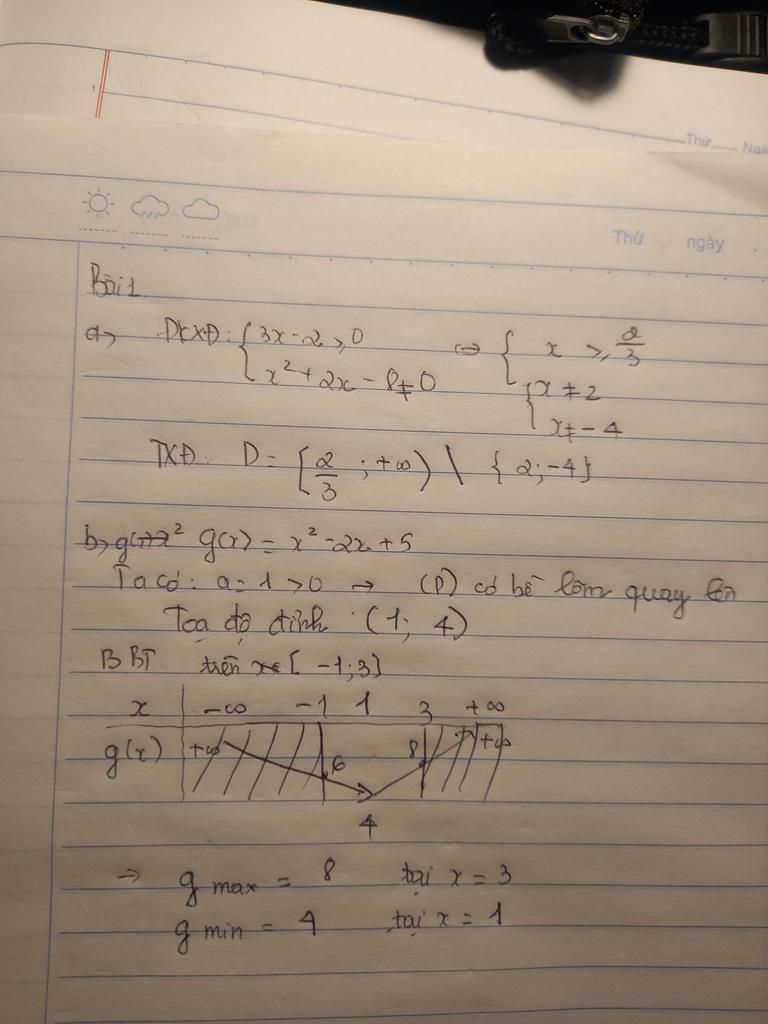 Thứ....... Ngà
Thứ ngày
Bài 1
a, ĐKXĐ: { 3x - 2 ≥ 0 ⇔ { x ≥ 2/3
x² + 2x - 8 ≠ 0 { x ≠ 2
x ≠ - 4
TXĐ: D = [ 2/3 ; +∞ ) \ { 2; -4 }
b, g(x) = x² - 2x + 5
Ta có: a = 1 > 0 → (P) có bề lõm quay lên
Toạ độ đỉnh (1; 4)
BBT trên [ -1; 3]
x -∞ -1 1 3 +∞
g(x) +∞ 6 8 +∞
4
→ g max = 8 tại x = 3
g min = 4 tại x = 1